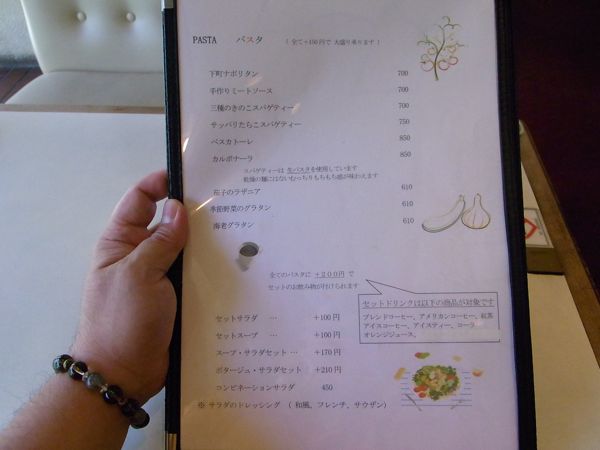 PASTA パスタ （ 全て＋150円で 大盛り承ります ）
下町ナポリタン 700
手作りミートソース 700
三種のきのこスパゲティー 700
サッパリたらこスパゲティー 750
ペスカトーレ 850
カルボナーラ 850
スパゲティーは 生パスタを使用しています
乾燥の麺にはないむっちりもちもち感が味わえます
茄子のラザニア 610
季節野菜のグラタン 610
海老グラタン 610
全てのパスタに ＋200円 で
セットのお飲み物が付けられます
セットドリンクは以下の商品が対象です
ブレンドコーヒー、アメリカンコーヒー、紅茶
アイスコーヒー、アイスティー、コーラ
オレンジジュース、
セットサラダ … ＋100円
セットスープ … ＋100円
スープ・サラダセット … ＋170円
ポタージュ・サラダセット ＋210円
コンビネーションサラダ 450
※ サラダのドレッシング （ 和風、フレンチ、サウザン）